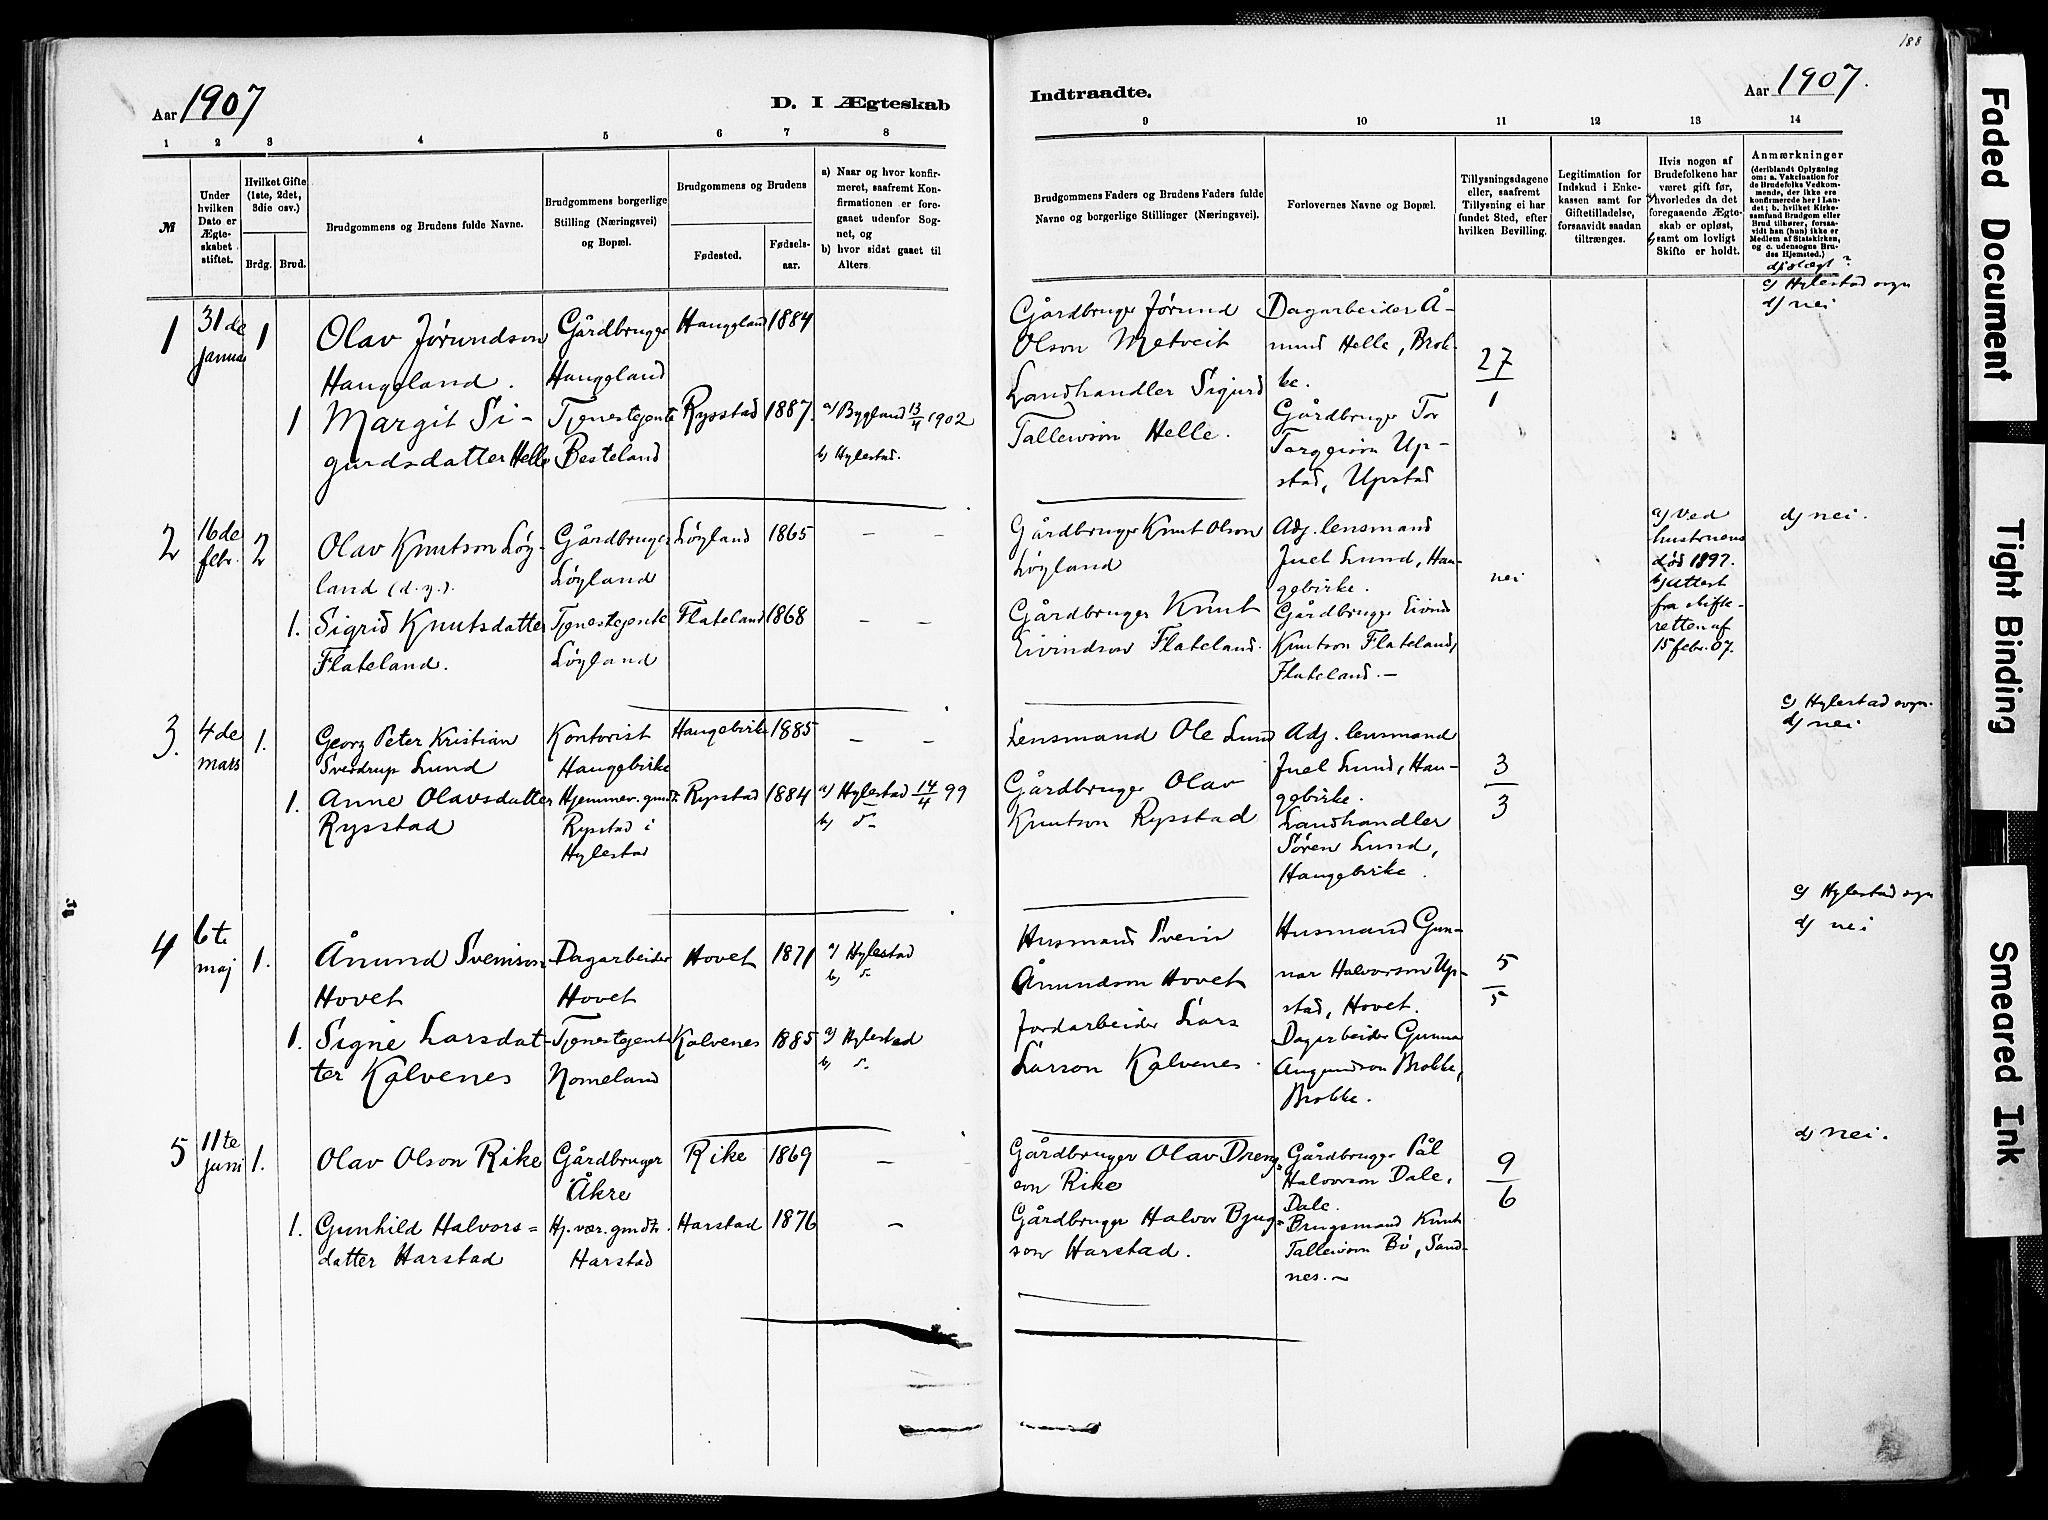 188
Aar 1907
D. I Ægteskab
Indtraadte.
Aar 1907.
1 2 3 4 5 6 7 8
9 10 11 12 13 14
№
Under hvilken Dato er Ægteskabet stiftet.
Hvilket Gifte (1ste, 2det, 3die osv.)
Brdg. Brud.
Brudgommens og Brudens fulde Navne.
Brudgommens borgerlige Stilling (Næringsvei) og Bopæl.
Brudgommens og Brudens
Fødested.
Fødselsaar.
a) Naar og hvor konfirmeret, saafremt Konfirmationen er foregaaet udenfor Sognet, og
b) hvor sidst gaaet til Alters.
Brudgommens Faders og Brudens Faders fulde Navne og borgerlige Stillinger (Næringsvei).
Forlovernes Navne og Bopæl.
Tillysningsdagene eller, saafremt Tillysning ei har fundet Sted, efter hvilken Bevilling.
Legitimation for Indskud i Enkekassen samt for Giftetilladelse, forsaavidt saadan tiltrænges.
Hvis nogen af Brudefolkene har været gift før, a) hvorledes da det foregaaende Ægteskab er opløst, b) samt om lovligt Skifte er holdt.
Anmærkninger
(deriblandt Oplysning om: a. Vakcination for de Brudefolks Vedkommende, der ikke ere konfirmerede her i Landet; b. hvilket Kirkesamfund Brudgom eller Brud tilhører, forsaavidt han (hun) ikke er Medlem af Statskirken, og c. udensogns Brudes Hjemsted.)
d) slægt?
1
31de
januar
1
Olav Jørundson
Haugeland.
Gårdbruger
Haugeland
Haugeland
1884
1
Margit Si-
gurdsdatter Helle
Tjenestejente
Besteland
Rysstad
1887.
a) Bygland 13/4 1902
b) Hylestad.
Gårdbruger Jørund
Olson Metveit
Landhandler Sigurd
Tallevson Helle.
Dagarbeider Å-
mund Helle, Brok-
ke.
Gårdbruger Tor
Torgeirson Up-
stad, Upstad
27/1
c) Hylestad sogn
d) nei
2
16de
febr.
2
Olav Knutson Løy-
land (d.y.).
Gårdbruger
Løyland
Løyland
1865
- -
1.
Sigrid Knutsdatter
Flateland.
Tjenestejente
Løyland
Flateland
1868
- -
Gårdbruger Knut Olson
Løyland
Gårdbruger Knut
Eivindson Flateland.
Adj. lensmand
Juel Lund, Hau-
gebirke.
Gårdbruger Eivind
Knutson Flateland,
Flateland. -
nei
a) ved
hustruens
død 1897.
b) attest
fra skifte-
retten af
15 febr. 07.
d) nei.
3.
4de
mars
1.
Georg Peter Kristian
Sverdrup Lund
Kontorist
Haugebirke
Haugebirke
1885
- -
1.
Anne Olavsdatter
Rysstad
Hjemmev. gmdt.
Rysstad i
Hylestad
Rysstad
1884
a) Hylestad 14/4 99
b) d-
Lensmand Ole Lund
Gårdbruger Olav
Knutson Rysstad
Adj. lensmand
Juel Lund, Hau-
gebirke.
Landhandler
Søren Lund,
Haugebirke.
3/3
c) Hylestad sogn.
d) nei
4
6te
maj
1.
Ånund Sveinson
Hovet
Dagarbeider
Hovet
Hovet
1871
a) Hylestad
b) d-
1.
Signe Larsdat-
ter Kalvenes
Tjenestejente
Nomeland
Kalvenes
1885
a) Hylestad
b) d-
Husmand Svein
Ånundson Hovet
Jordarbeider Lars
Larson Kalvenes.
Husmand Gun-
nar Halvorson Up-
stad, Hovet.
Dagarbeider Gunnar
Augundson Brokke,
Brokke.
5/5
c) Hylestad sogn
d) nei
5
11te
juni
1.
Olav Olson Rike
Gårdbruger
Åkre
Rike
1869
- -
1.
Gunhild Halvors=
datter Harstad
Hj. vær. gmdt.
Harstad
Harstad
1876
-
Gårdbruger Olav Dreng=
son Rike
Gårdbruger Halvor Bjug=
son Harstad.
Gårdbruger Pål
Halvorson Dale,
Dale.
Brugsmand Knut
Tallevson Bø, Sand-
nes. -
9/6
d) nei.
Faded Document
Tight Binding
Smeared Ink